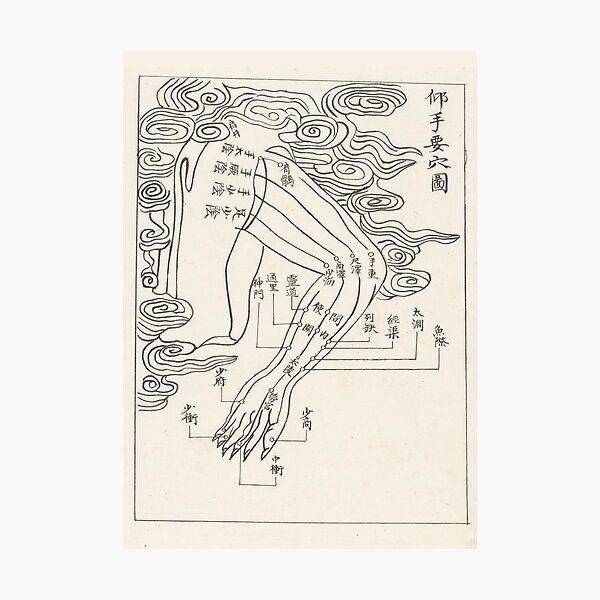 仰手要穴圖
手太陰
手厥陰
手少陰
足少陰
肩髃
手重
尺澤
曲澤
少海
靈道
通里
神門
間使
內關
列缺
經渠
太淵
魚際
大陵
勞宮
少府
少衝
少商
中衝